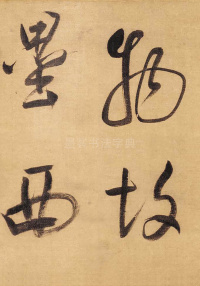 物故
墨西